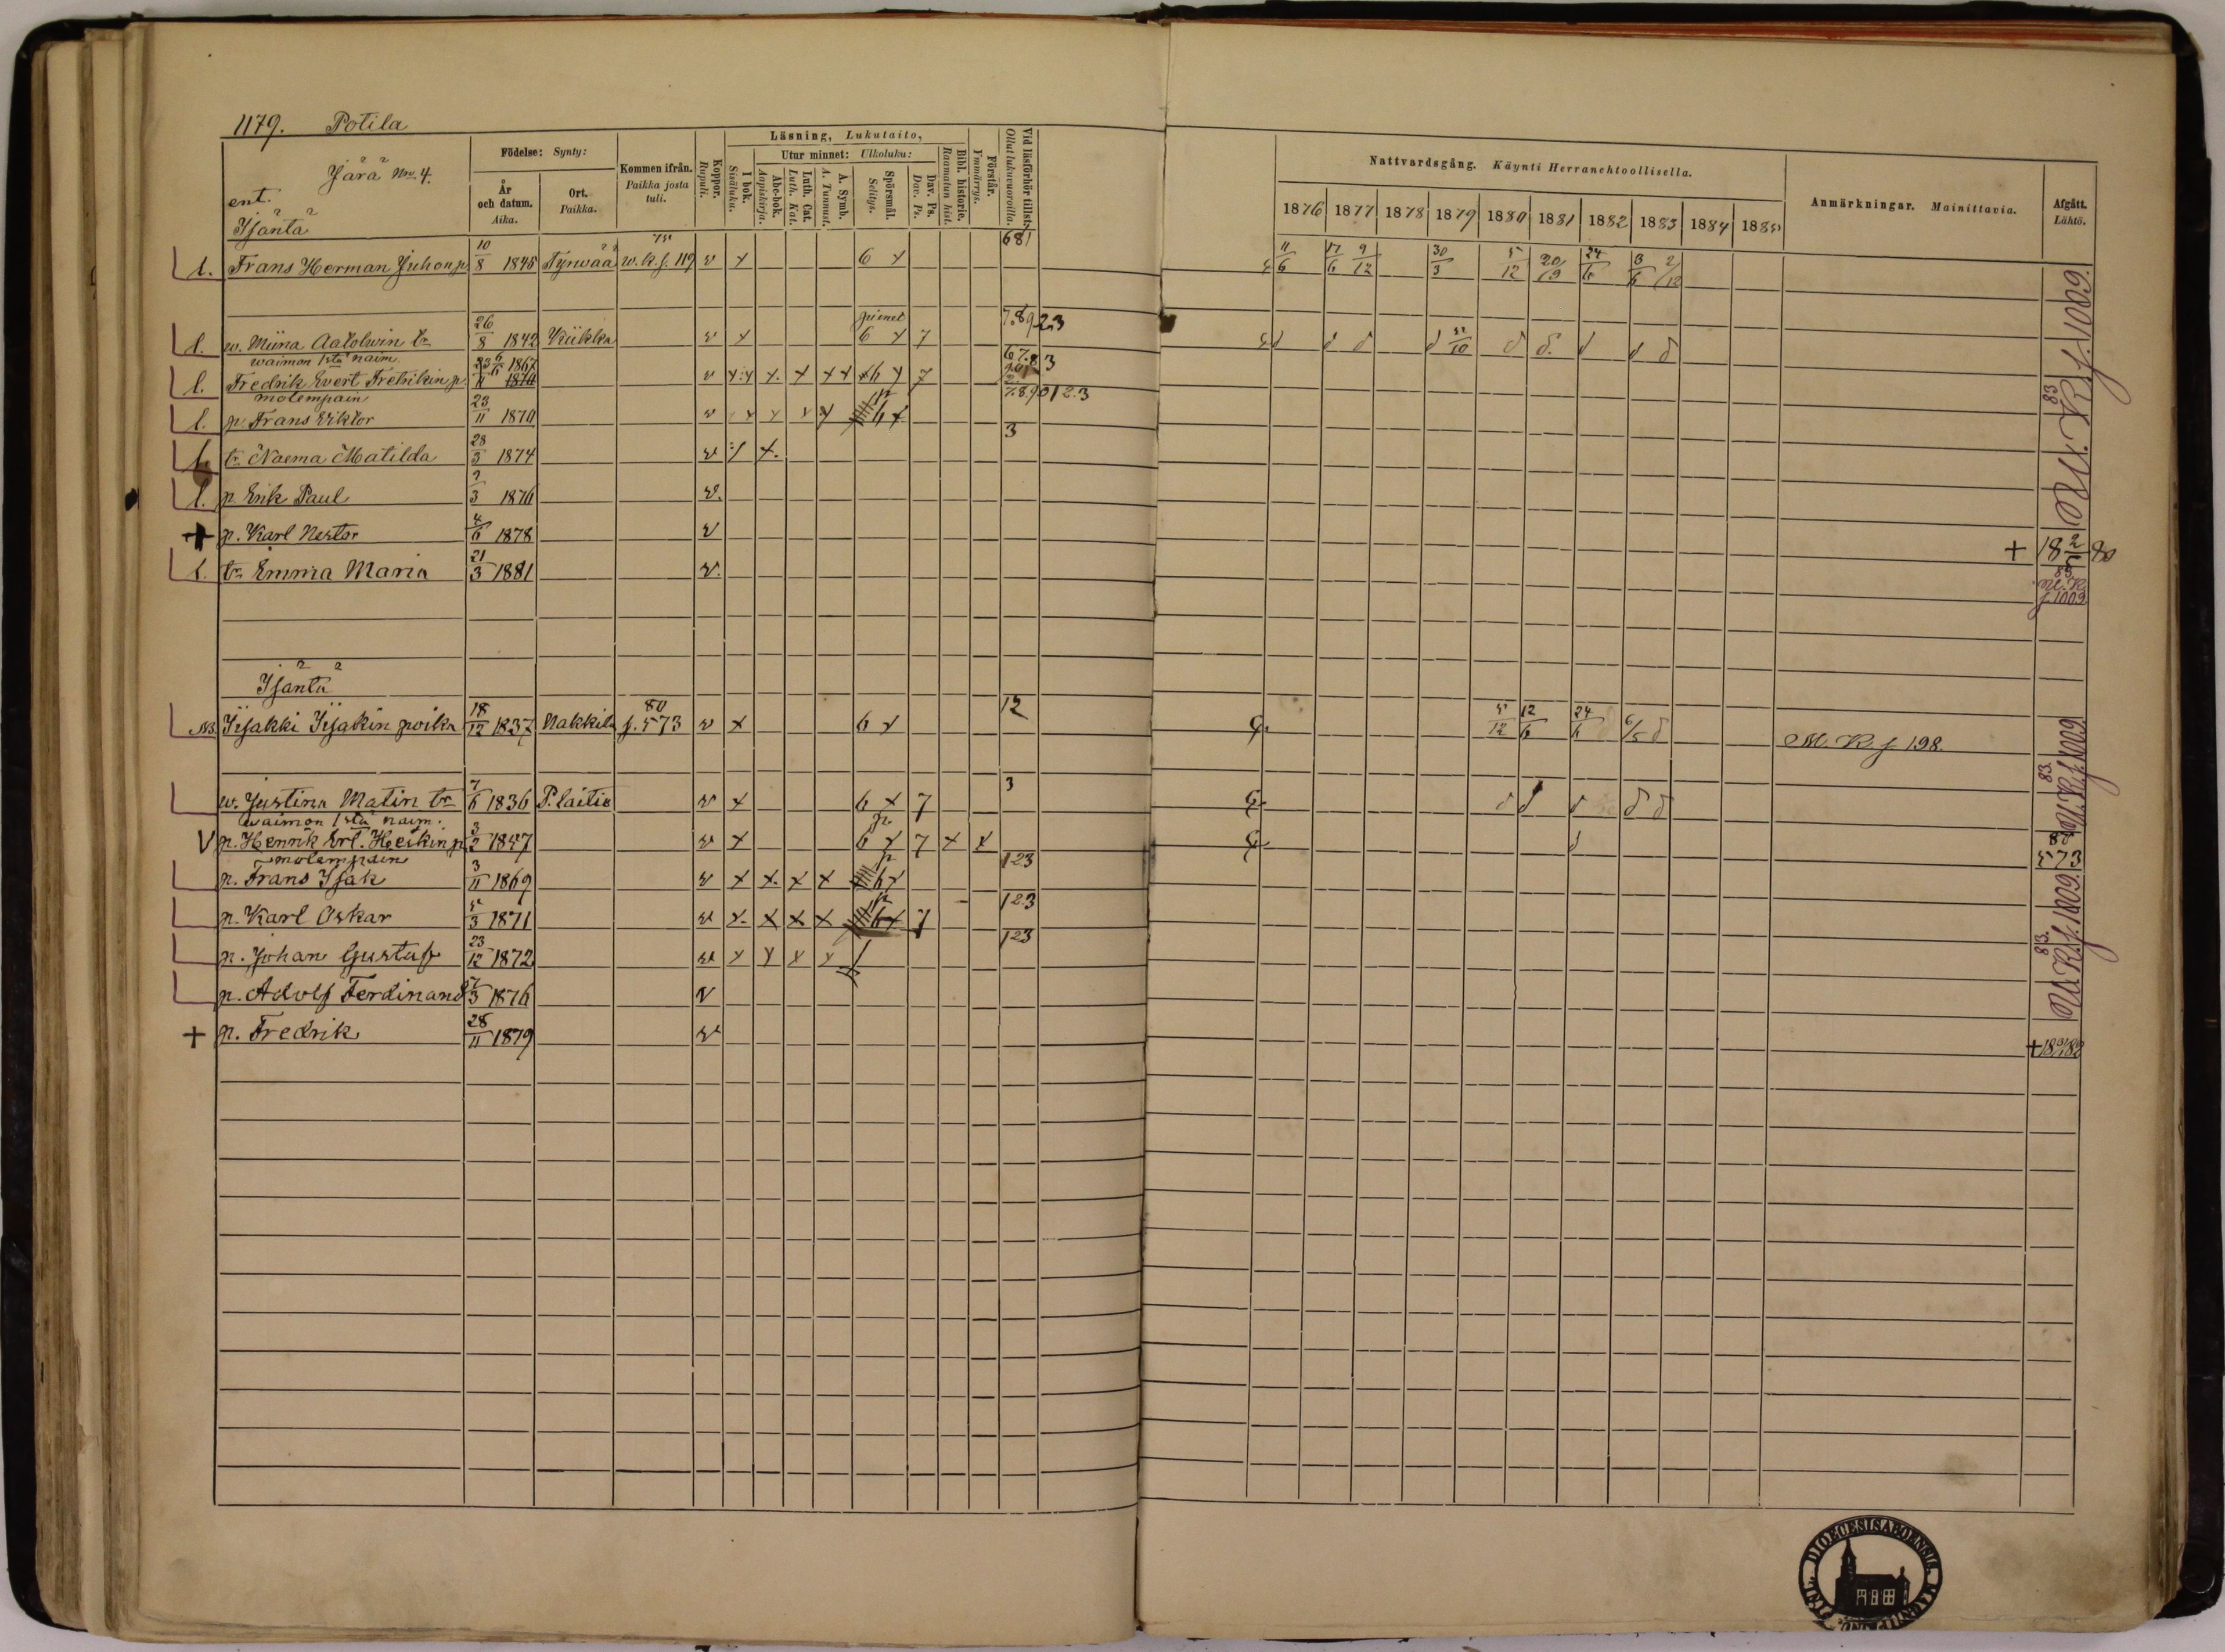 1179. Potila
Järä Nro. 4.
ent.
Isäntä
Födelse: Synty:
År och datum. Aika.
Ort. Paikka.
Kommen ifrån. Paikka josta tuli.
Koppor. Rupuli.
Läsning, Lukutaito,
I bok. Sisäluku.
Utur minnet: Ulkoluku:
Abc-bok. Aapiskirja.
Luth. Cat. Luth. Kat.
A. Symb. A. Tunnust.
Spörsmål. Selitys.
Dav. Ps. Dav. Ps.
Bibl. historie. Raamatun hist.
Förstår. Ymmärrys.
Vid läsförhör tillst. Ollut lukuvuoroilla.
Nattvardsgång. Käynti Herranehtoollisella.
1876 1877 1878 1879 1880 1881 1882 1883 1884 1885
Anmärkningar. Mainittavia.
Afgått. Lähtö.
l. Frans Herman Juhon p. 10/8 1845 Tyrwää 75 w.k.s. 119 v x 6 x 681 11/6 17/6 9/12 30/3 5/12 20/3 24/6 3/6 2/12
l. w. Miina Aatolwin tr. 26/8 1842 Kiikka v x 6 x 7 7.8923
waimon 1stä naim.
l. Fredrik Evert Fredrikin p. 6/6 1867 v x 6 x 7
molempain
l. p. Frans Viktor 23/11 1870 v x x x x 6 x 7.89012.3
l. tr. Naema Matilda 28/3 1874 v x x. 3
l. p. Erik Paul 2/3 1876 v.
+ p. Karl Nestor 4/6 1878 v + 18 80
l. tr. Emma Maria 21/3 1881 v. 83 U.K. s. 1009
83 U.K. s. 1009.
Isäntä
Iisakki Iisakin poika 18/12 1837 Nakkila 80 s. 573 v x 6 x 12 5/12 12/6 24/6 6/5 M. K. s. 198.
w. Justina Matin tr. 7/6 1836 P. laitio v x 6 x 7 3 83. U.K.s. 1009
waimon 1stä naim.
V p. Henrik Erl. Heikin p. 1857 v x 6 x 7 x x 573
molempain
p. Frans Isak 3/11 1869 v x x. x x 6 x 123
p. Karl Oskar 5/3 1871 v x. x x x 6 x 7 123
p. Johan Gustaf 23/12 1872 v x x x x 123
p. Adolf Ferdinand 7/3 1876 v
83. U.K.s. 1009.
+ p. Fredrik 28/11 1879 v